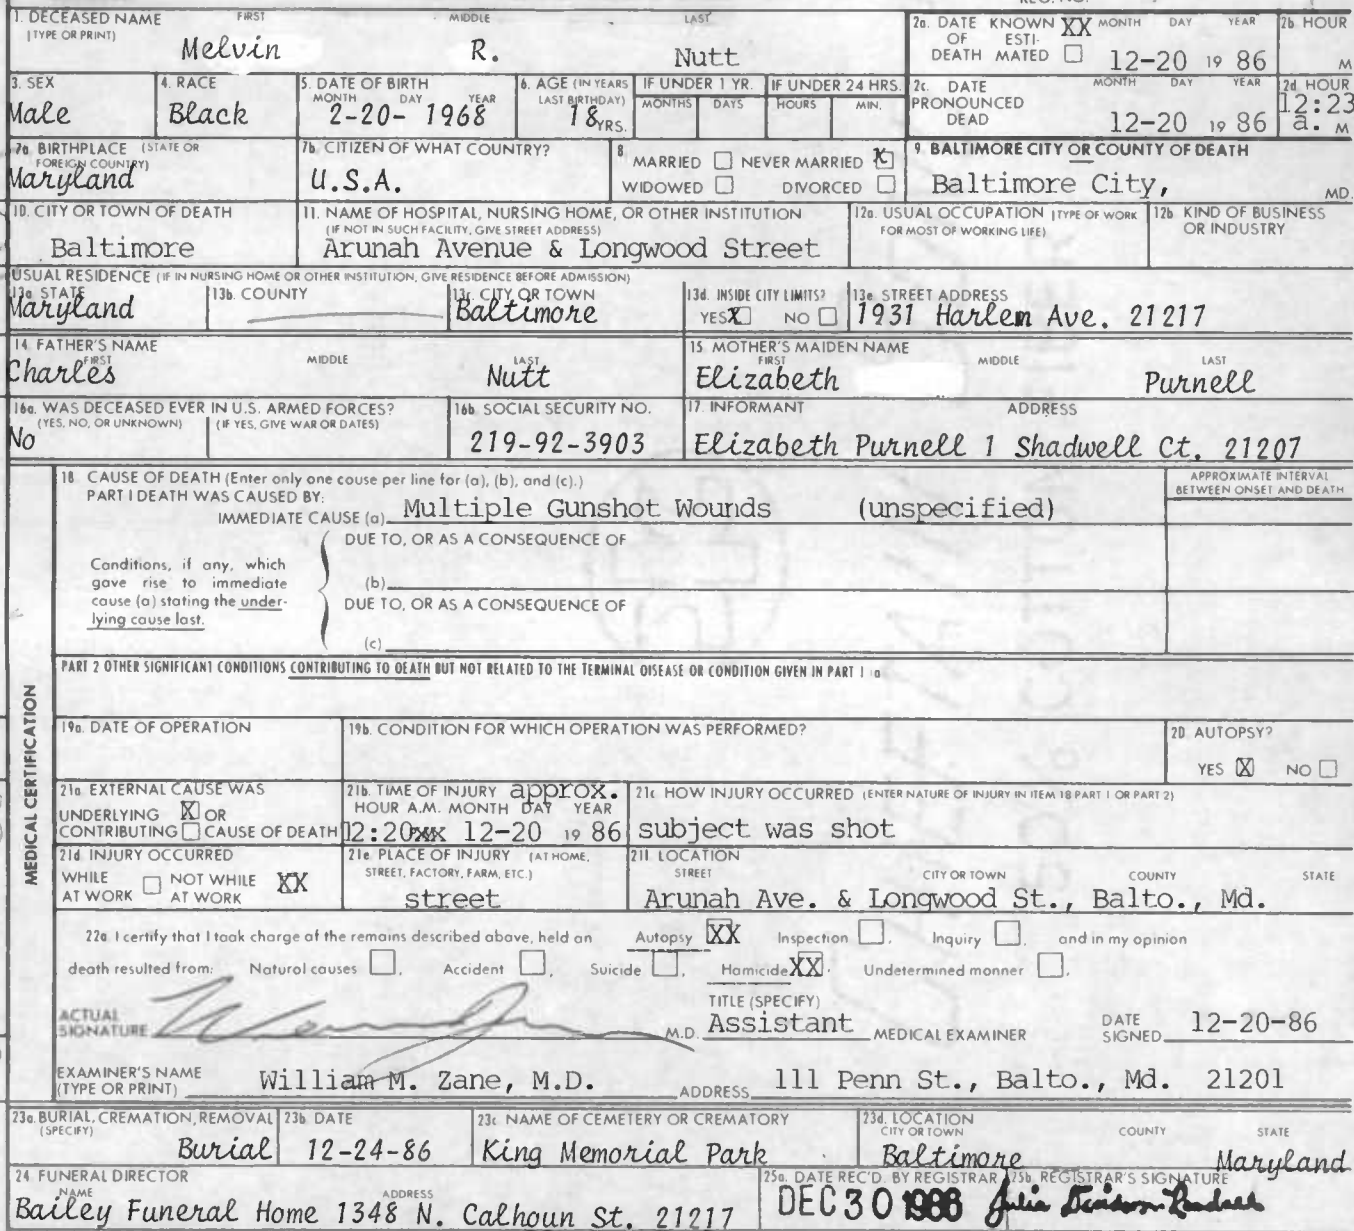 1. DECEASED NAME FIRST MIDDLE LAST
(TYPE OR PRINT)
Melvin R. Nutt
2a. DATE KNOWN XX MONTH DAY YEAR 2b HOUR
OF ESTI-
DEATH MATED 12-20 19 86 M
3. SEX 4. RACE 5. DATE OF BIRTH 6. AGE (IN YEARS IF UNDER 1 YR. IF UNDER 24 HRS.
MONTH DAY YEAR LAST BIRTHDAY) MONTHS DAYS HOURS MIN.
Male Black 2-20-1968 18 YRS.
2c. DATE MONTH DAY YEAR 2d HOUR
PRONOUNCED 12:23
DEAD 12-20 19 86 a. M
7a BIRTHPLACE (STATE OR
FOREIGN COUNTRY)
Maryland
7b. CITIZEN OF WHAT COUNTRY?
U.S.A.
8 MARRIED NEVER MARRIED X
WIDOWED DIVORCED
9 BALTIMORE CITY OR COUNTY OF DEATH
Baltimore City, MD.
10. CITY OR TOWN OF DEATH
Baltimore
11. NAME OF HOSPITAL, NURSING HOME, OR OTHER INSTITUTION
(IF NOT IN SUCH FACILITY, GIVE STREET ADDRESS)
Arunah Avenue & Longwood Street
12a. USUAL OCCUPATION (TYPE OF WORK
FOR MOST OF WORKING LIFE)
12b KIND OF BUSINESS
OR INDUSTRY
USUAL RESIDENCE (IF IN NURSING HOME OR OTHER INSTITUTION, GIVE RESIDENCE BEFORE ADMISSION)
13a STATE 13b. COUNTY 13c. CITY OR TOWN 13d. INSIDE CITY LIMITS? 13e STREET ADDRESS
Maryland Baltimore YES X NO 1931 Harlem Ave. 21217
14 FATHER'S NAME
FIRST MIDDLE LAST
Charles Nutt
15 MOTHER'S MAIDEN NAME
FIRST MIDDLE LAST
Elizabeth Purnell
16a. WAS DECEASED EVER IN U.S. ARMED FORCES?
(YES, NO, OR UNKNOWN) (IF YES, GIVE WAR OR DATES)
No
16b SOCIAL SECURITY NO.
219-92-3903
17. INFORMANT ADDRESS
Elizabeth Purnell 1 Shadwell Ct. 21207
MEDICAL CERTIFICATION
18 CAUSE OF DEATH (Enter only one couse per line for (a), (b), and (c).)
PART I DEATH WAS CAUSED BY:
IMMEDIATE CAUSE (a) Multiple Gunshot Wounds (unspecified)
APPROXIMATE INTERVAL
BETWEEN ONSET AND DEATH
DUE TO, OR AS A CONSEQUENCE OF
Conditions, if any, which
gave rise to immediate
cause (a) stating the under-
lying cause last.
(b)
DUE TO, OR AS A CONSEQUENCE OF
(c)
PART 2 OTHER SIGNIFICANT CONDITIONS CONTRIBUTING TO DEATH BUT NOT RELATED TO THE TERMINAL DISEASE OR CONDITION GIVEN IN PART 1 (a
19a. DATE OF OPERATION
19b. CONDITION FOR WHICH OPERATION WAS PERFORMED?
20 AUTOPSY?
YES X NO
21a EXTERNAL CAUSE WAS
UNDERLYING X OR
CONTRIBUTING CAUSE OF DEATH
21b. TIME OF INJURY approx.
HOUR A.M. MONTH DAY YEAR
12:20xx 12-20 19 86
21c HOW INJURY OCCURRED (ENTER NATURE OF INJURY IN ITEM 18 PART 1 OR PART 2)
subject was shot
21d INJURY OCCURRED
WHILE NOT WHILE XX
AT WORK AT WORK
21e PLACE OF INJURY (AT HOME,
STREET, FACTORY, FARM, ETC.)
street
21f LOCATION
STREET CITY OR TOWN COUNTY STATE
Arunah Ave. & Longwood St., Balto., Md.
22a I certify that I took charge of the remains described above, held an Autopsy XX Inspection , Inquiry , and in my opinion
death resulted from: Natural causes , Accident , Suicide , Homicide XX. Undetermined manner .
ACTUAL
SIGNATURE M.D.
TITLE (SPECIFY)
Assistant MEDICAL EXAMINER
DATE
SIGNED 12-20-86
EXAMINER'S NAME
(TYPE OR PRINT) William M. Zane, M.D. ADDRESS 111 Penn St., Balto., Md. 21201
23a. BURIAL, CREMATION, REMOVAL
(SPECIFY)
Burial
23b DATE
12-24-86
23c NAME OF CEMETERY OR CREMATORY
King Memorial Park
23d. LOCATION
CITY OR TOWN COUNTY STATE
Baltimore Maryland
24 FUNERAL DIRECTOR
NAME ADDRESS
Bailey Funeral Home 1348 N. Calhoun St. 21217
25a. DATE REC'D. BY REGISTRAR
DEC 30 1986
25b. REGISTRAR'S SIGNATURE